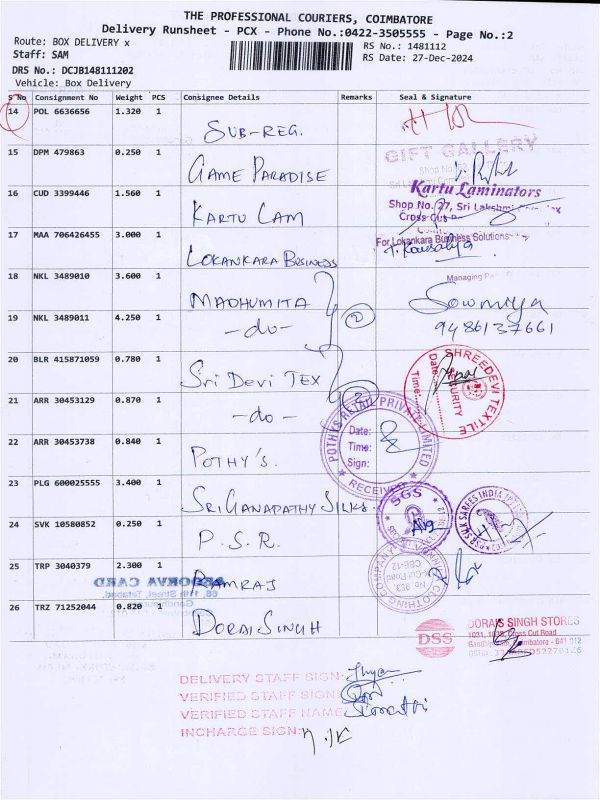 THE PROFESSIONAL COURIERS, COIMBATORE
Delivery Runsheet - PCX - Phone No.:0422-3505555 - Page No.:2
Route: BOX DELIVERY x
Staff: SAM
RS No.: 1481112
RS Date: 27-Dec-2024
DRS No.: DCJB148111202
Vehicle: Box Delivery
S No Consignment No Weight PCS Consignee Details Remarks Seal & Signature
14 POL 6636656 1.320 1
SUB-REG.
GIFT GALLERY
15 DPM 479863 0.250 1
GAME PARADISE
Shop No.
16 CUD 3399446 1.560 1
KARTU LAM
Kartu Laminators
Shop No. 27, Sri Lakshmi
Cross Cut
17 MAA 706426455 3.000 1
LOKANKARA BUSINESS
For Lokankara Business Solutions
T. Kausalya
18 NKL 3489010 3.600 1
MADHUMITA
Managing
Sowmiya
9486137661
19 NKL 3489011 4.250 1
-do-
2
20 BLR 415871059 0.780 1
SRI DEVI TEX
SHREEDEVI TEXTILE
SECURITY
Date:
Time:
21 ARR 30453129 0.870 1
-do-
2
22 ARR 30453738 0.840 1
POTHY'S.
POTHYS RETAIL PRIVATE LIMITED
Date:
Time:
Sign:
RECEIVED
23 PLG 600025555 3.400 1
SRI GANAPATHY SILKS.
SGS
24 SVK 10580852 0.250 1
P.S.R.
PSR SILK SAREES INDIA
25 TRP 3040379 2.300 1
RAMRAJ
CLOTHING COMPANY
CBE-12
26 TRZ 71252044 0.820 1
DORAI SINGH
DSS
DORAIS SINGH STORES
Cross Cut Road
Coimbatore - 641 012
DELIVERY STAFF SIGN:
VERIFIED STAFF SIGN:
VERIFIED STAFF NAME:
INCHARGE SIGN: